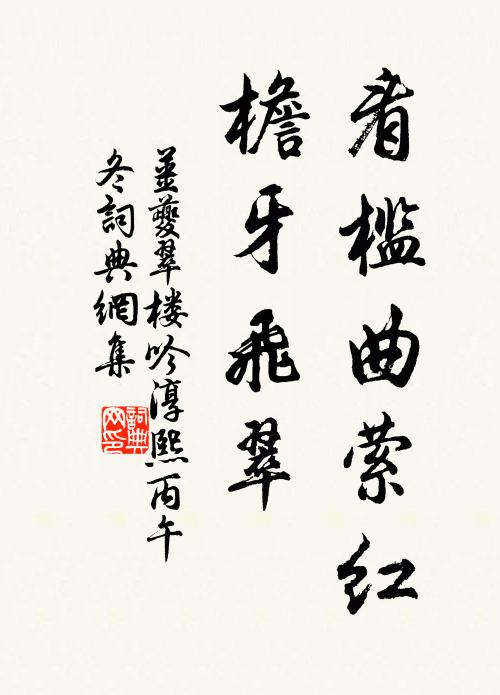 看檻曲萦紅
檐牙飛翠
姜夔翠楼吟淳熙丙午
冬詞典網集
詞典网印